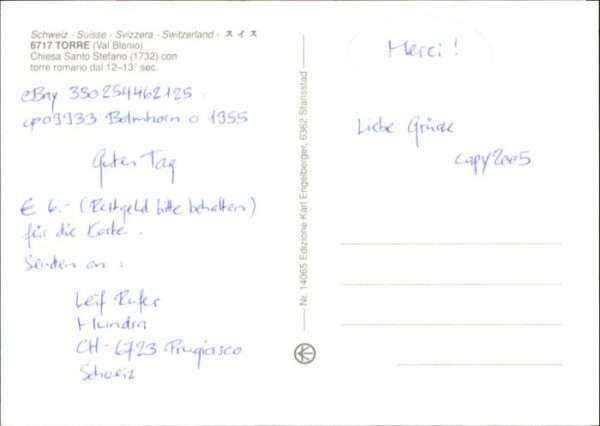 Schweiz - Suisse - Svizzera - Switzerland - スイス
6717 TORRE (Val Blenio)
Chiesa Santo Stefano (1732) con
torre romano dal 12-13° sec.
eBay 380254462125.
cp09933 Balmhorn o 1955
Guten Tag
€ 6.- (Restgeld bitte behalten)
für die Karte.
Senden an:
Leif Rufer
Mundra
CH-6723 Prugiasco
Schweiz
Nr. 14065 Edizione Karl Engelberger, 6362 Stansstad
Merci!
Liebe Grüsse
copy2005